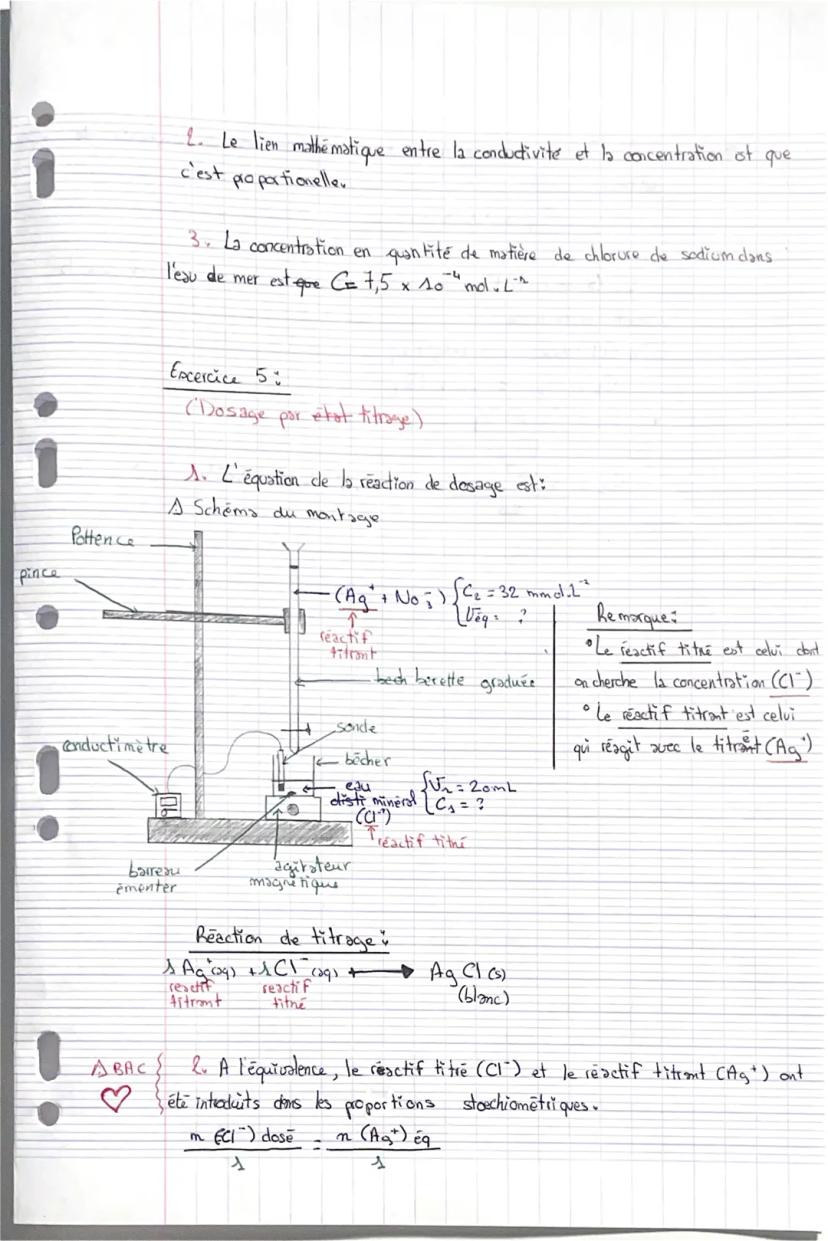 2. Le lien mathématique entre la conductivité et la concentration est que
c'est proportionelle.
3. La concentration en quantité de matière de chlorure de sodium dans
l'eau de mer est que C = 7,5 x 10⁻⁴ mol. L⁻¹
Excercice 5 :
(Dosage par état titrage)
1. L'équation de la réaction de dosage est :
Δ Schéma du montage
Pottence
pince
(Ag⁺ + No₃⁻) { C₂ = 32 mmol.L⁻¹
Véq = ?
réactif
titrant
bech burette graduée
sonde
conductimètre
bêcher
eau
disti minéral
(Cl⁻)
{ V₁ = 20mL
C₁ = ?
réactif titré
barreau
émenter
agitateur
magnétique
Remarque :
° Le réactif titré est celui dont
on cherche la concentration (Cl⁻)
° Le réactif titrant est celui
qui réagit avec le titré (Ag⁺)
Réaction de titrage :
1 Ag⁺(aq) + 1 Cl⁻(aq) → Ag Cl (s)
reactif
titrant
reactif
titré
(blanc)
Δ BAC
2. A l'équivalence, le réactif titré (Cl⁻) et le réactif titrant (Ag⁺) ont
été introduits dans les proportions stoechiométriques.
n (Cl⁻) dosé = n (Ag⁺) éq
1 1